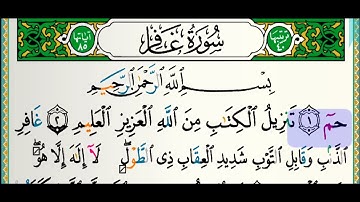 ترتيبها ٤٠
سُورَةُ غَافِر
آياتها ٨٥
بِسْمِ اللَّهِ الرَّحْمَٰنِ الرَّحِيمِ
حمٓ ۝١ تَنزِيلُ الْكِتَٰبِ مِنَ اللَّهِ الْعَزِيزِ الْعَلِيمِ ۝٢ غَافِرِ
الذَّنۢبِ وَقَابِلِ التَّوْبِ شَدِيدِ الْعِقَابِ ذِى الطَّوْلِ ۖ لَآ إِلَٰهَ إِلَّا هُوَ ۖ